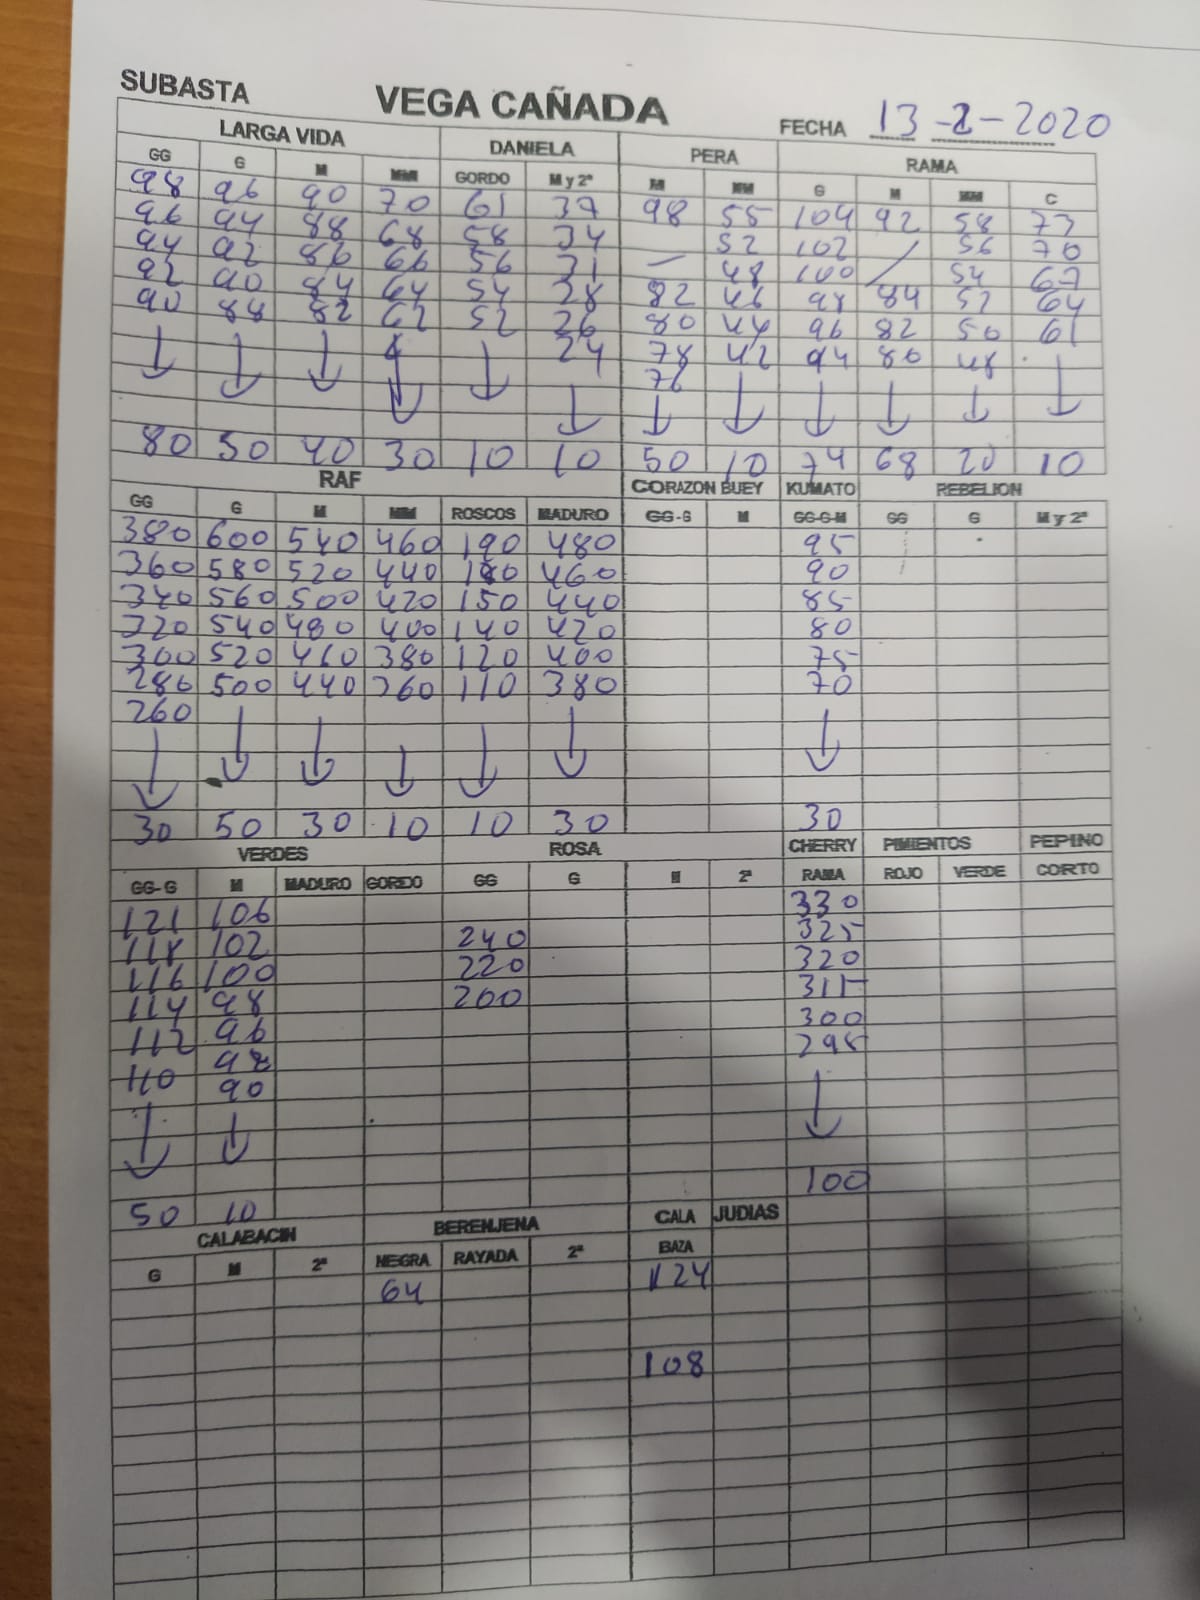 SUBASTA VEGA CAÑADA FECHA 13-2-2020
LARGA VIDA DANIELA PERA RAMA
GG G M MM GORDO M y 2ª M MM G M MM C
98 96 90 70 61 37 98 55 104 92 58 73
96 94 88 68 58 34 52 102 / 56 70
94 92 86 66 56 31 — 48 100 / 54 67
92 90 84 64 54 28 82 46 98 84 52 64
90 88 82 62 52 26 80 44 96 82 50 61
24 78 42 94 80 48
76
80 50 40 30 10 10 50 10 74 68 20 10
RAF CORAZON BUEY KUMATO REBELION
GG G M MM ROSCOS MADURO GG-G M GG-G-M GG G M y 2ª
380 600 540 460 190 480 95
360 580 520 440 180 460 90
340 560 500 420 150 440 85
320 540 480 400 140 420 80
300 520 460 380 120 400 75
280 500 440 360 110 380 70
260
30 50 30 10 10 30 30
VERDES ROSA CHERRY PIMIENTOS PEPINO
GG-G M MADURO GORDO GG G M 2ª RAMA ROJO VERDE CORTO
121 106 330
118 102 240 325
116 100 220 320
114 98 200 315
112 96 300
110 295
90
100
50 10
CALABACIN BERENJENA CALA JUDIAS
G M 2ª NEGRA RAYADA 2ª BAZA
64 124
108